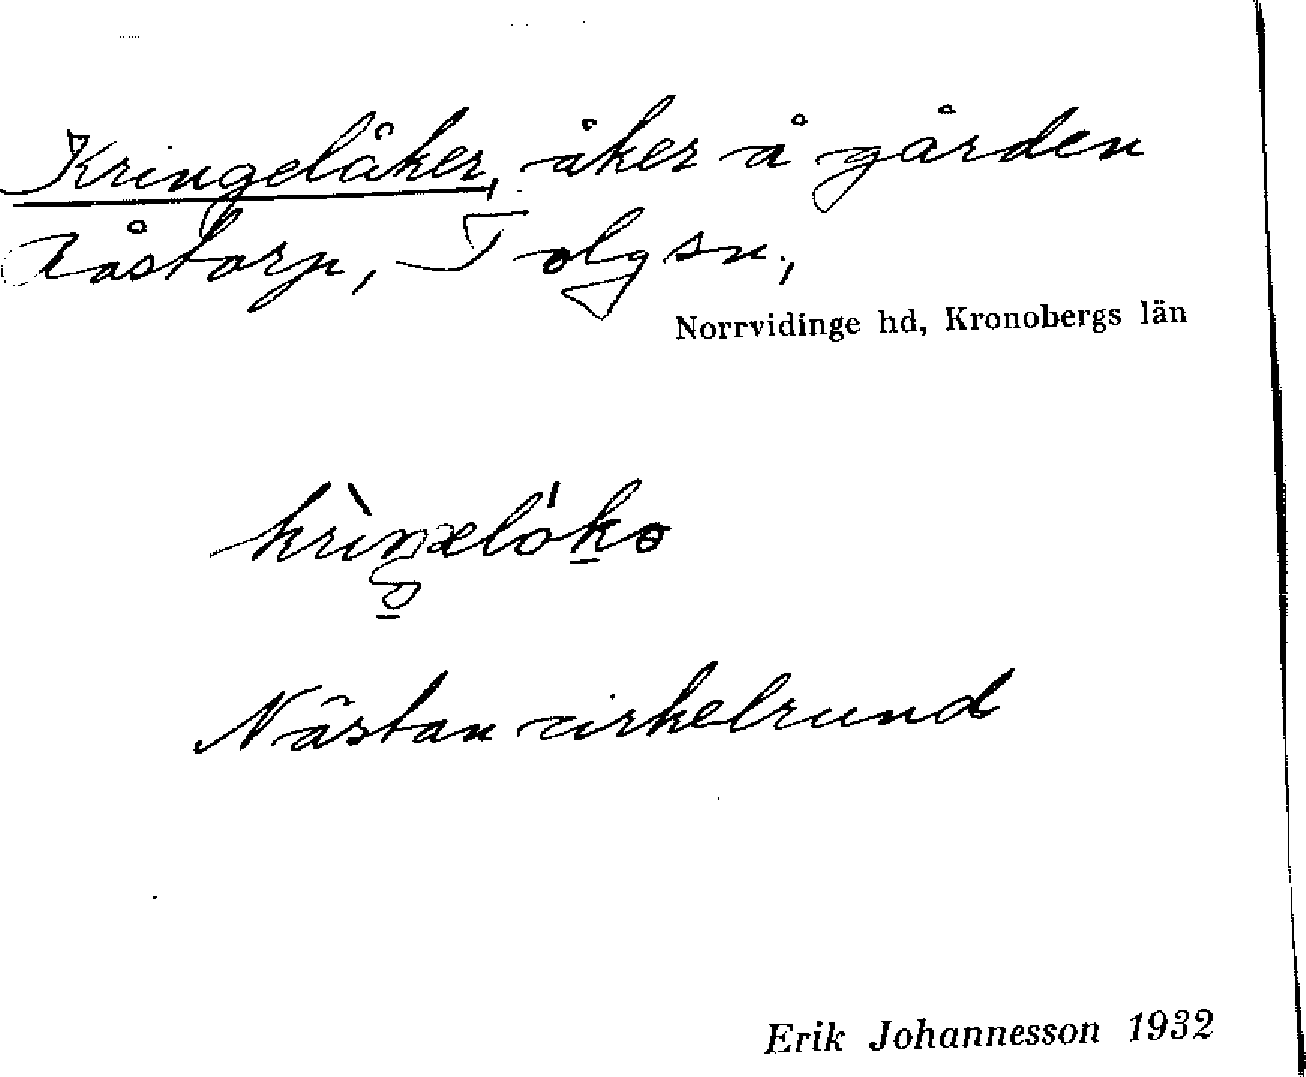 Kringelåker, åker å gården
Råstorp, Tolg sn,
Norrvidinge hd, Kronobergs län
Nästan cirkelrund
Erik Johannesson 1932